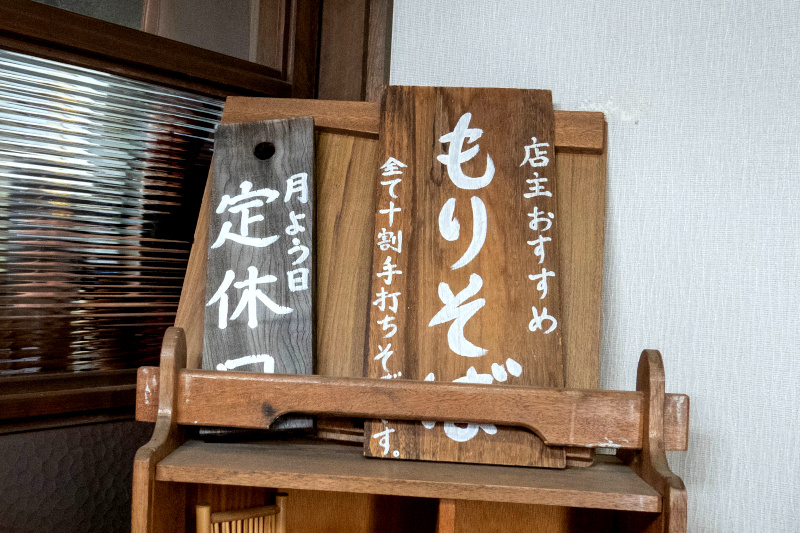 店主おすすめ
もりそば
全て十割手打ちそばです。
月よう日
定休日